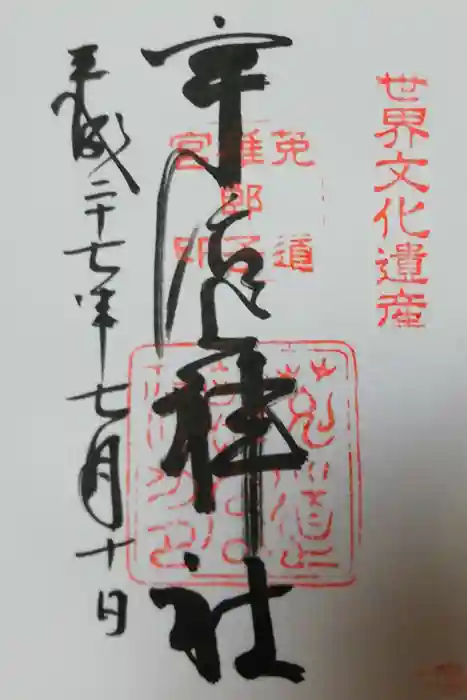 世界文化遺産
宇治上神社
菟道
稚郎子
宮印
平成二十七年七月十日